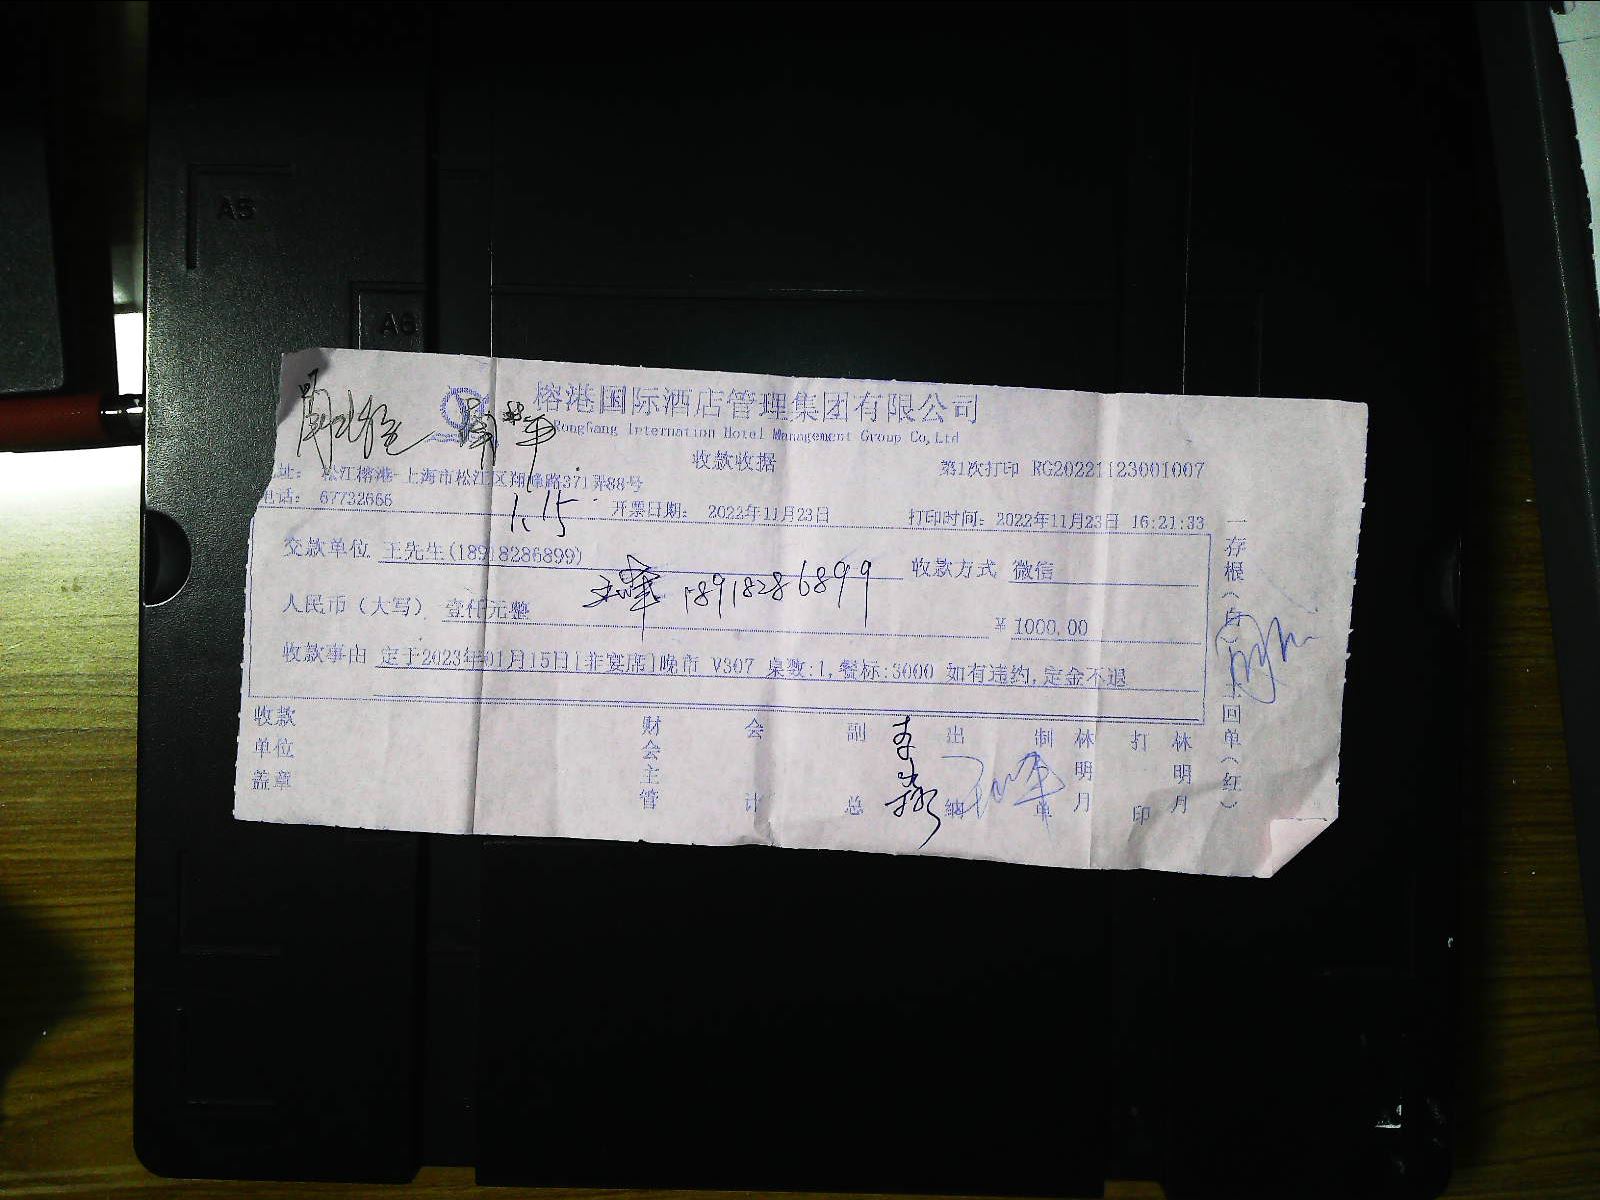 A5
A6
榕港国际酒店管理集团有限公司
RongGang Internation Hotel Management Group Co,Ltd
收款收据
第1次打印 RG20221123001007
址: 松江榕港-上海市松江区翔峰路371弄88号
电话: 67732666
1.15
开票日期: 2022年11月23日
打印时间: 2022年11月23日 16:21:33
交款单位 王先生(18918286899)
收款方式 微信
18918286899
人民币(大写) 壹仟元整
¥ 1000.00
收款事由 定于2023年01月15日[非宴席]晚市 V307 桌数:1,餐标:3000 如有违约,定金不退
收款单位盖章
财会主管
会计
副总
出纳
制单
林明月
打印
林明月
一存根(白)
回单(红)